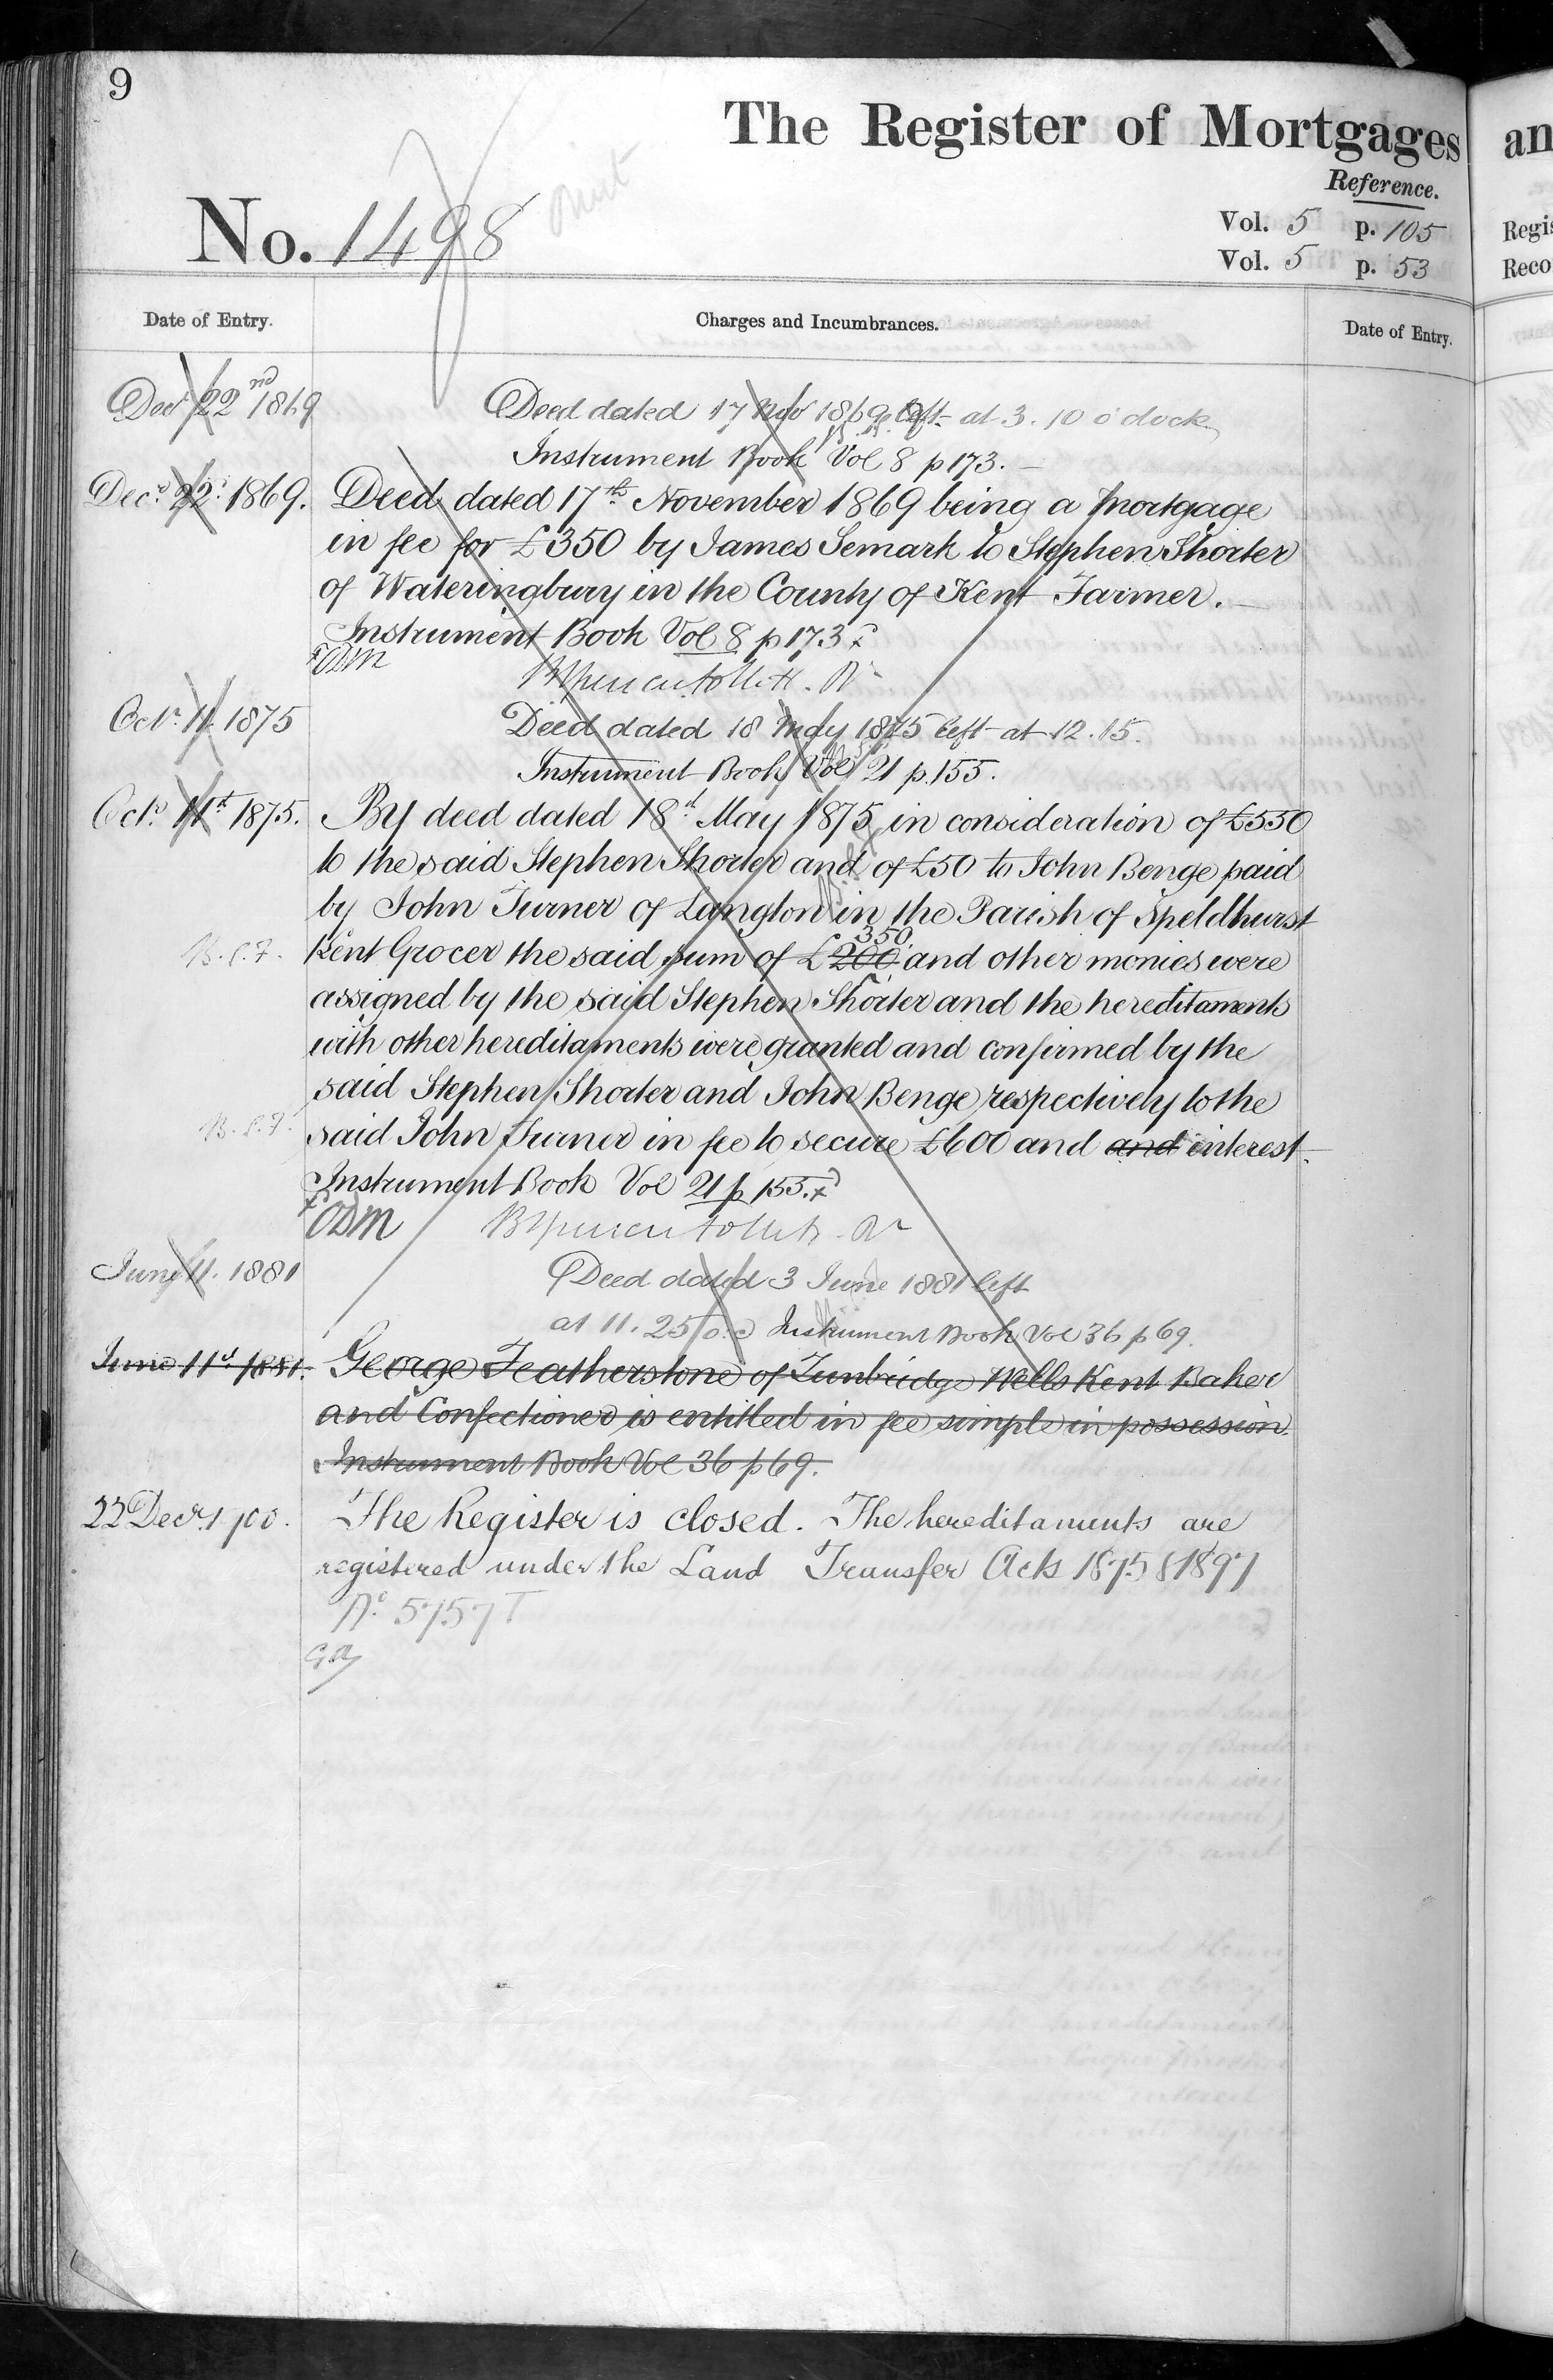 9
The Register of Mortgages
an
Reference.
No. 1498
Vol. 5 p. 105
Regis
Vol. 5 p. 53
Reco
Date of Entry.
Charges and Incumbrances.
Date of Entry.
Decr 22nd 1869
Deed dated 17 Nov 1869 left at 3.10 o'clock
Instrument Book Vol 8 p 173.
Decr 22d 1869.
Deed dated 17th November 1869 being a Mortgage
in fee for £350 by James Semark to Stephen Shorter
of Wateringbury in the County of Kent Farmer.
Instrument Book Vol 8 p 173 x
x ODM
Octr 11 1875
Deed dated 18 May 1875 left at 12.15.
Instrument Book Vol 21 p. 155.
Octr 11th 1875.
By deed dated 18th May 1875 in consideration of £550
to the said Stephen Shorter and of £50 to John Benge paid
by John Turner of Langton in the Parish of Speldhurst
350
Kent Grocer the said sum of £200 and other monies were
assigned by the said Stephen Shorter and the hereditaments
with other hereditaments were granted and confirmed by the
said Stephen Shorter and John Benge respectively to the
said John Turner in fee to secure £600 and and interest.
Instrument Book Vol 21 p 155. x
x ODM
June 11. 1881
Deed dated 3 June 1881 left
at 11.25 Instrument Book Vol 36 p 69.
June 11th 1881.
George Featherstone of Tunbridge Wells Kent Baker
and Confectioner is entitled in fee simple in possession.
Instrument Book Vol 36 p 69.
22 Decr 1900.
The Register is closed. The hereditaments are
registered under the Land Transfer Acts 1875 & 1897
No 5757